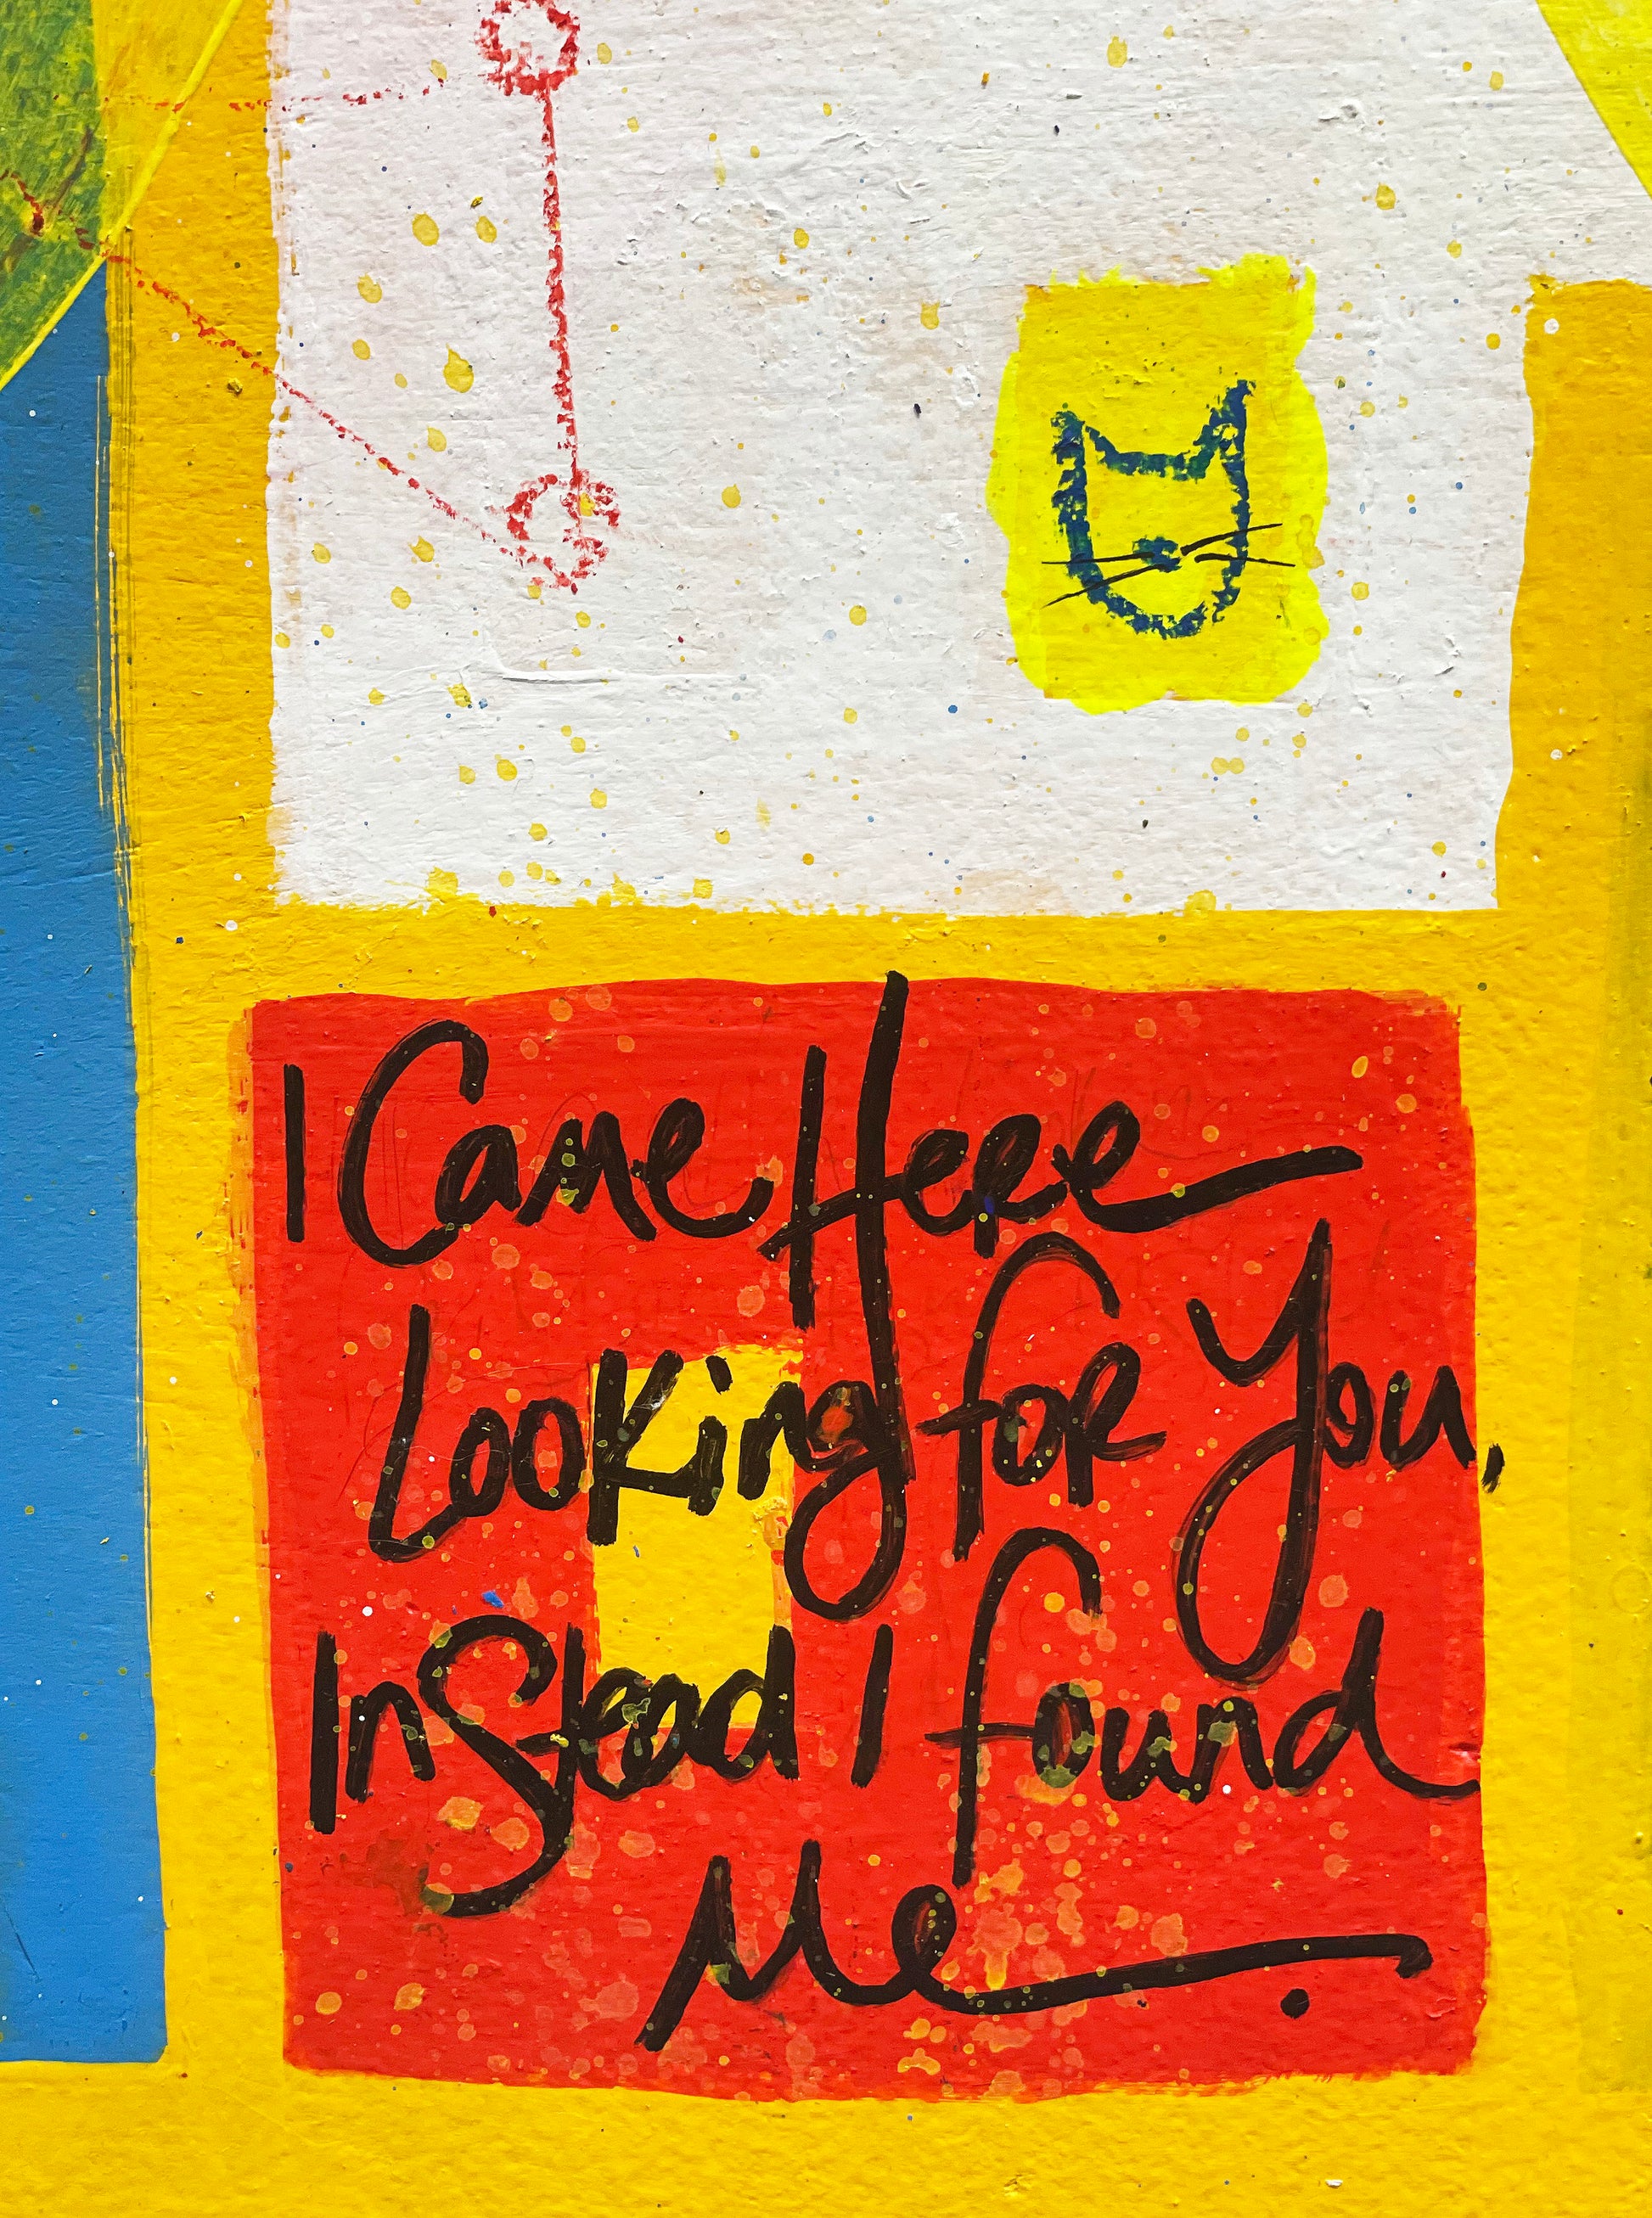 I Came Here
Looking for You,
Instead I found
Me.